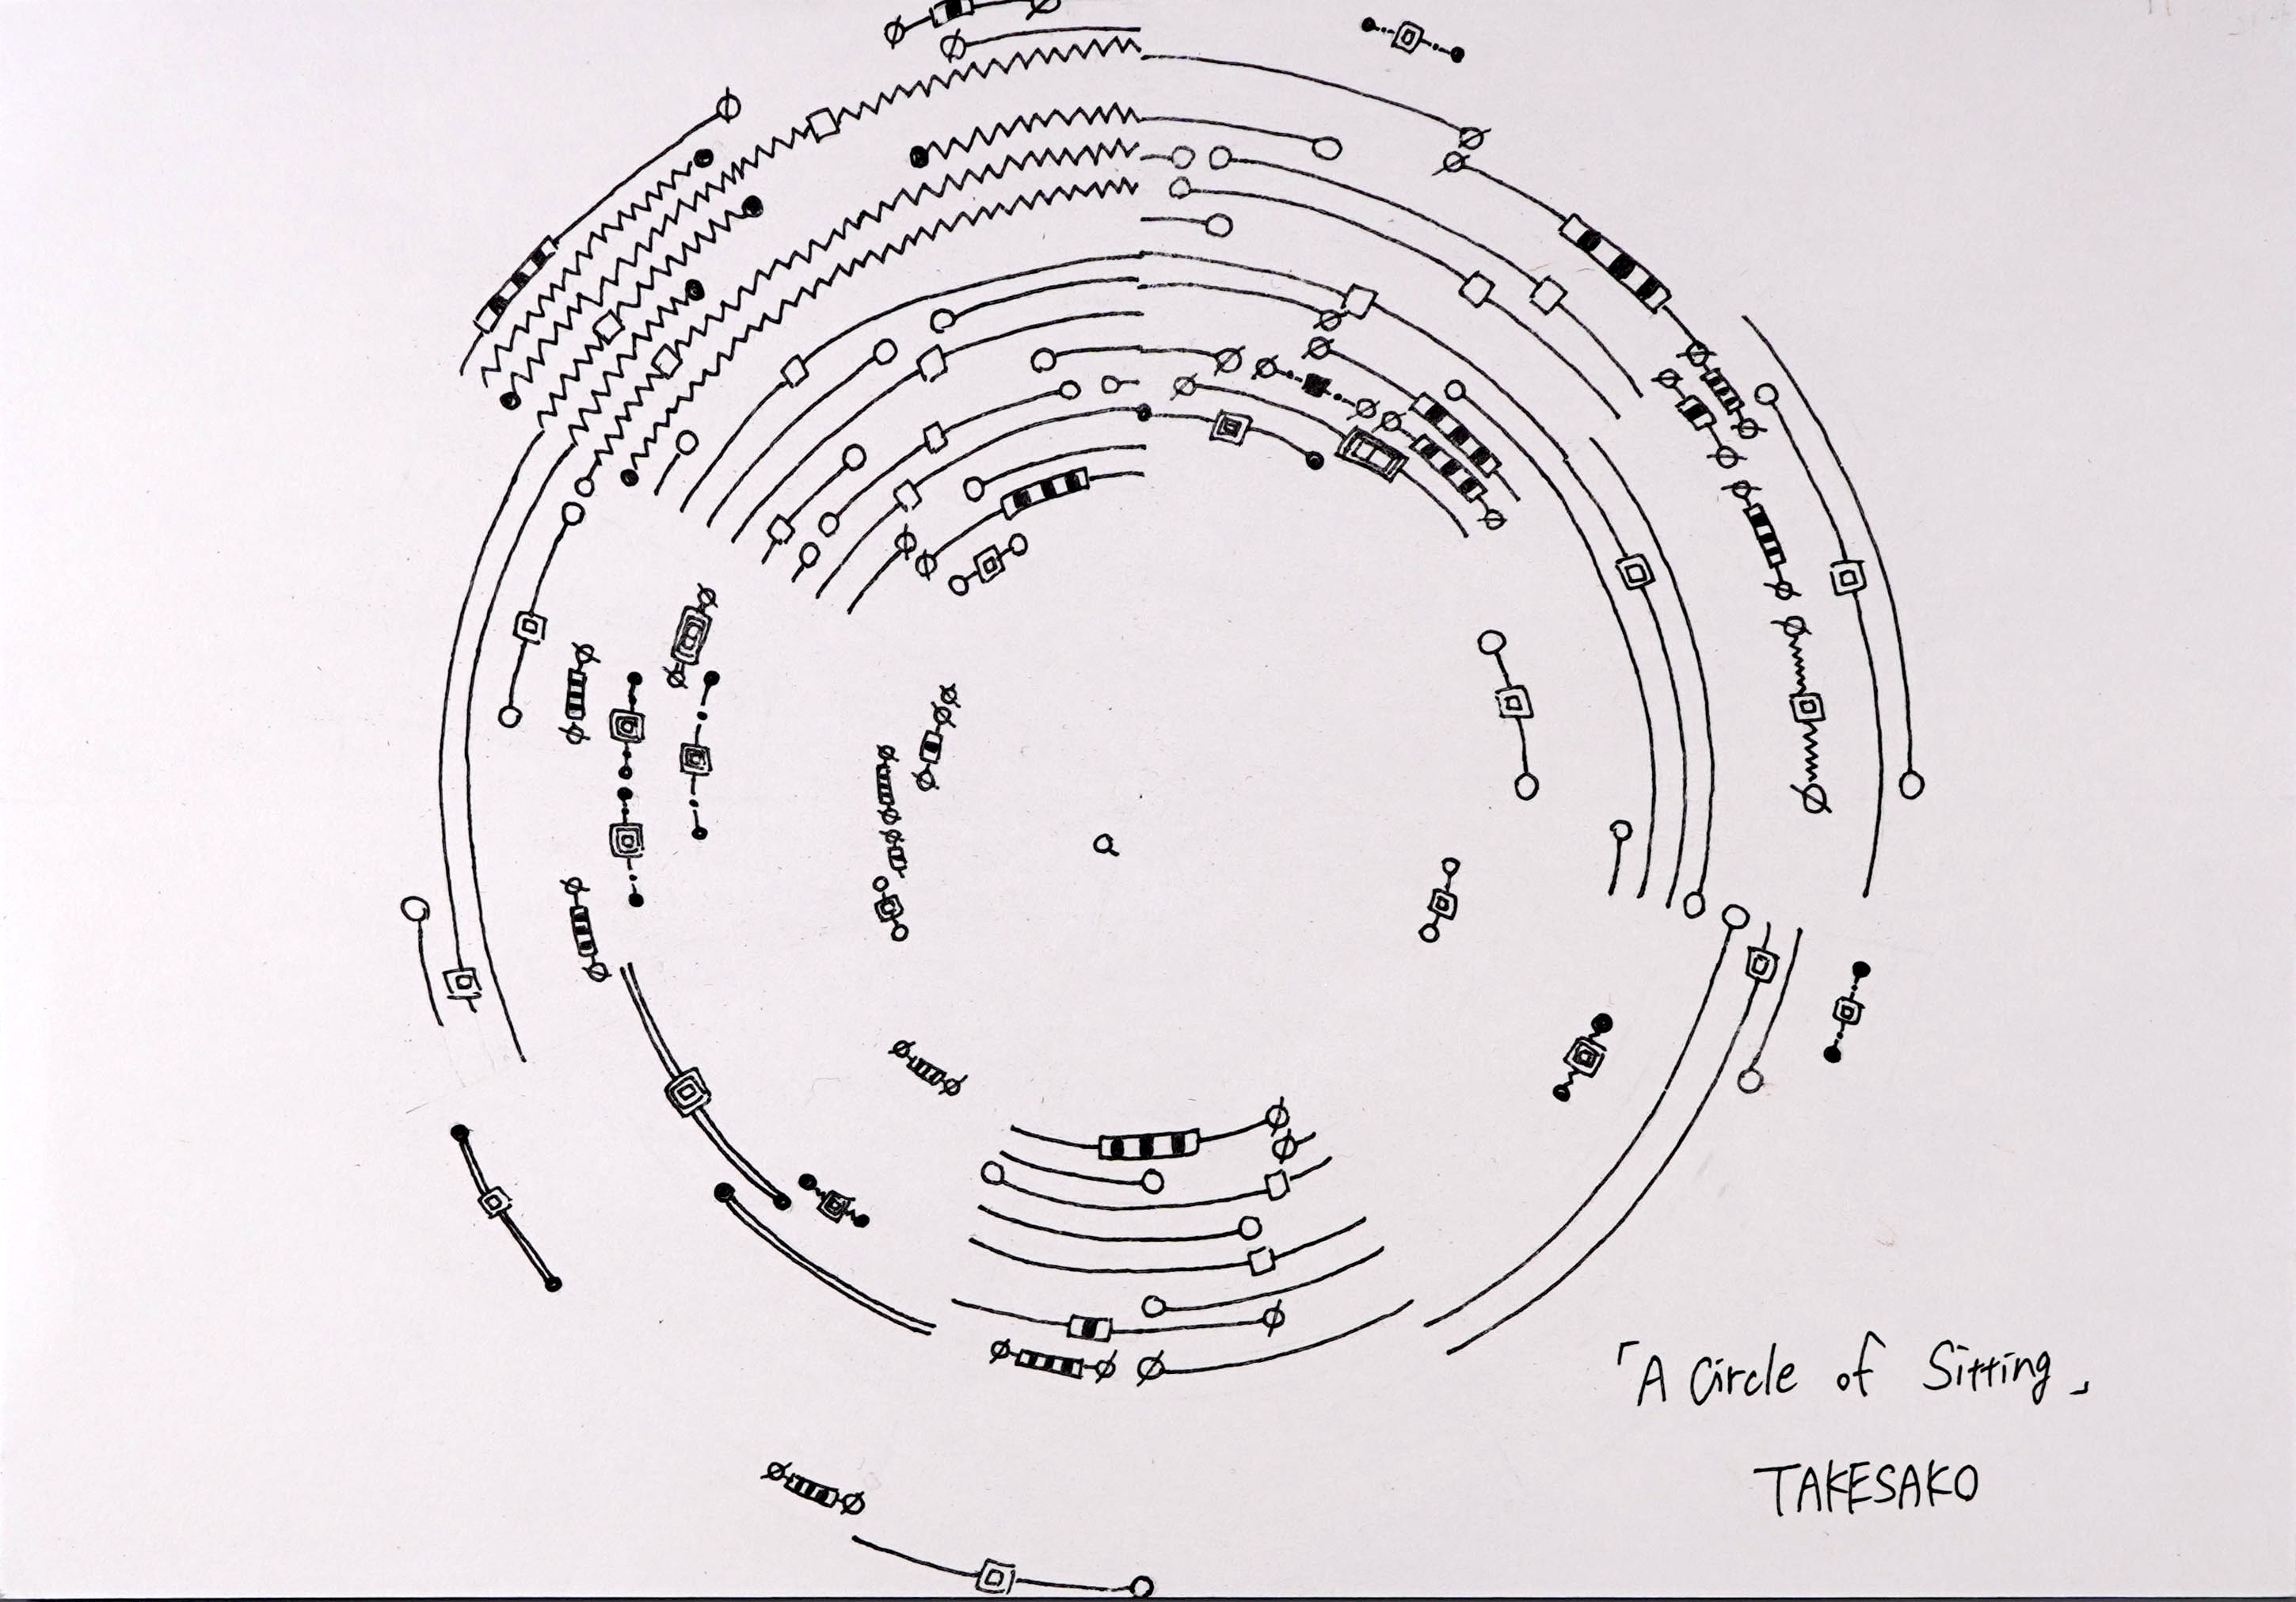 「A Circle of Sitting」
TAKESAKO